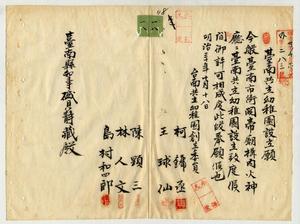 臺南共立幼稚園設立願
今般臺南市街関帝廟構内火神
廟ニ臺南共立幼稚園設立致度候
間御許可相成度此段奉願候也
明治三十年十月十八日
台南共立幼稚園創立委員
柯錦丞
王球仙
陳顕三
林人文
島村和四郎
臺南縣知事磯貝静藏殿